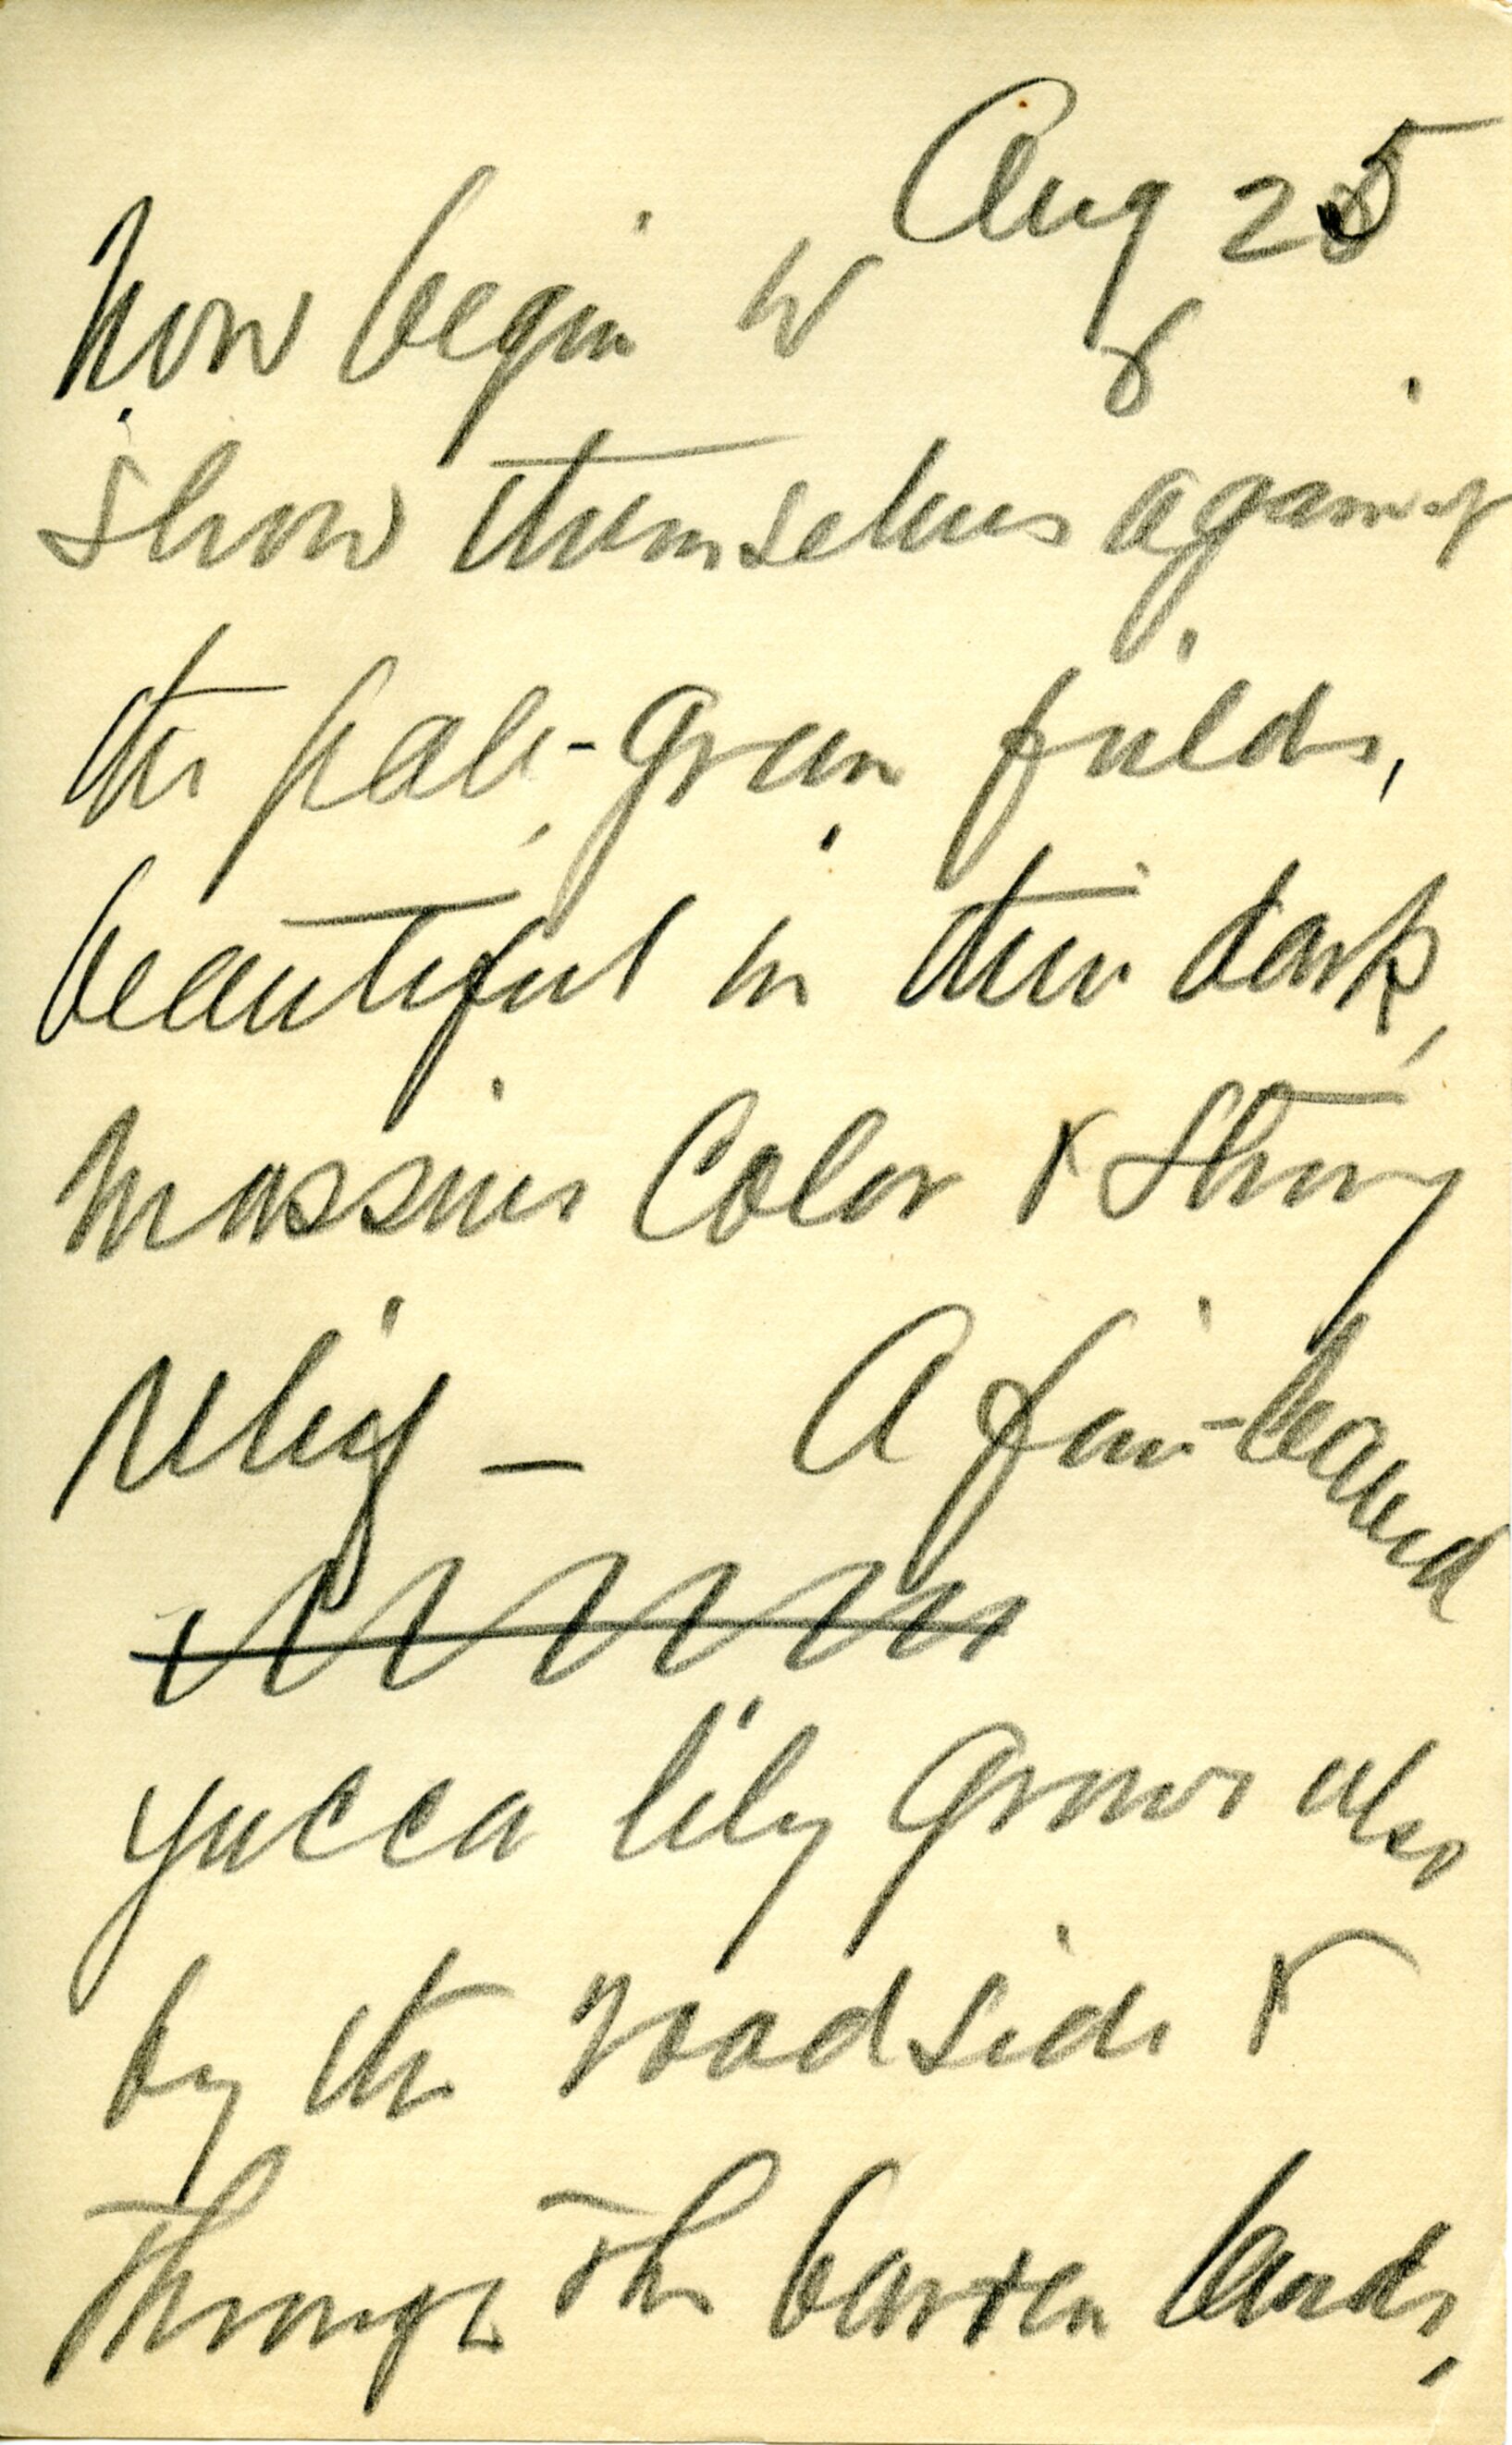 Aug 25
8
now begin to
show themselves against
the pale-green fields,
beautiful in their dark,
massive color & strong
relief — A fine-leaved
yucca lily grows also
by the roadside &
through the barren lands,